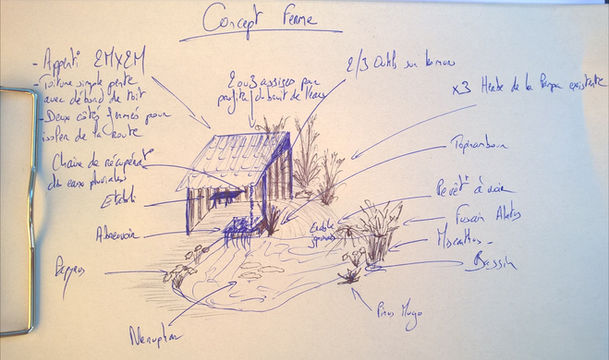 Concept Ferme
- Appenti 2Mx2M
- Toiture simple pente
avec débord de toit
- Deux côtés fermés pour
isoler de la route
2 ou 3 assises pour
profiter du bruit de l'eau
2/3 Outils sur le mur
x3 Herbe de la Pampa existante
Chaine de récupérat°
des eaux pluviales
Topinambour
Etabli
Revêt° à voir
Abreuvoir
Erable
japonais
Fusain Alatus
Miscanthus
Bassin
Papyrus
Pinus Mugo
Nénuphar